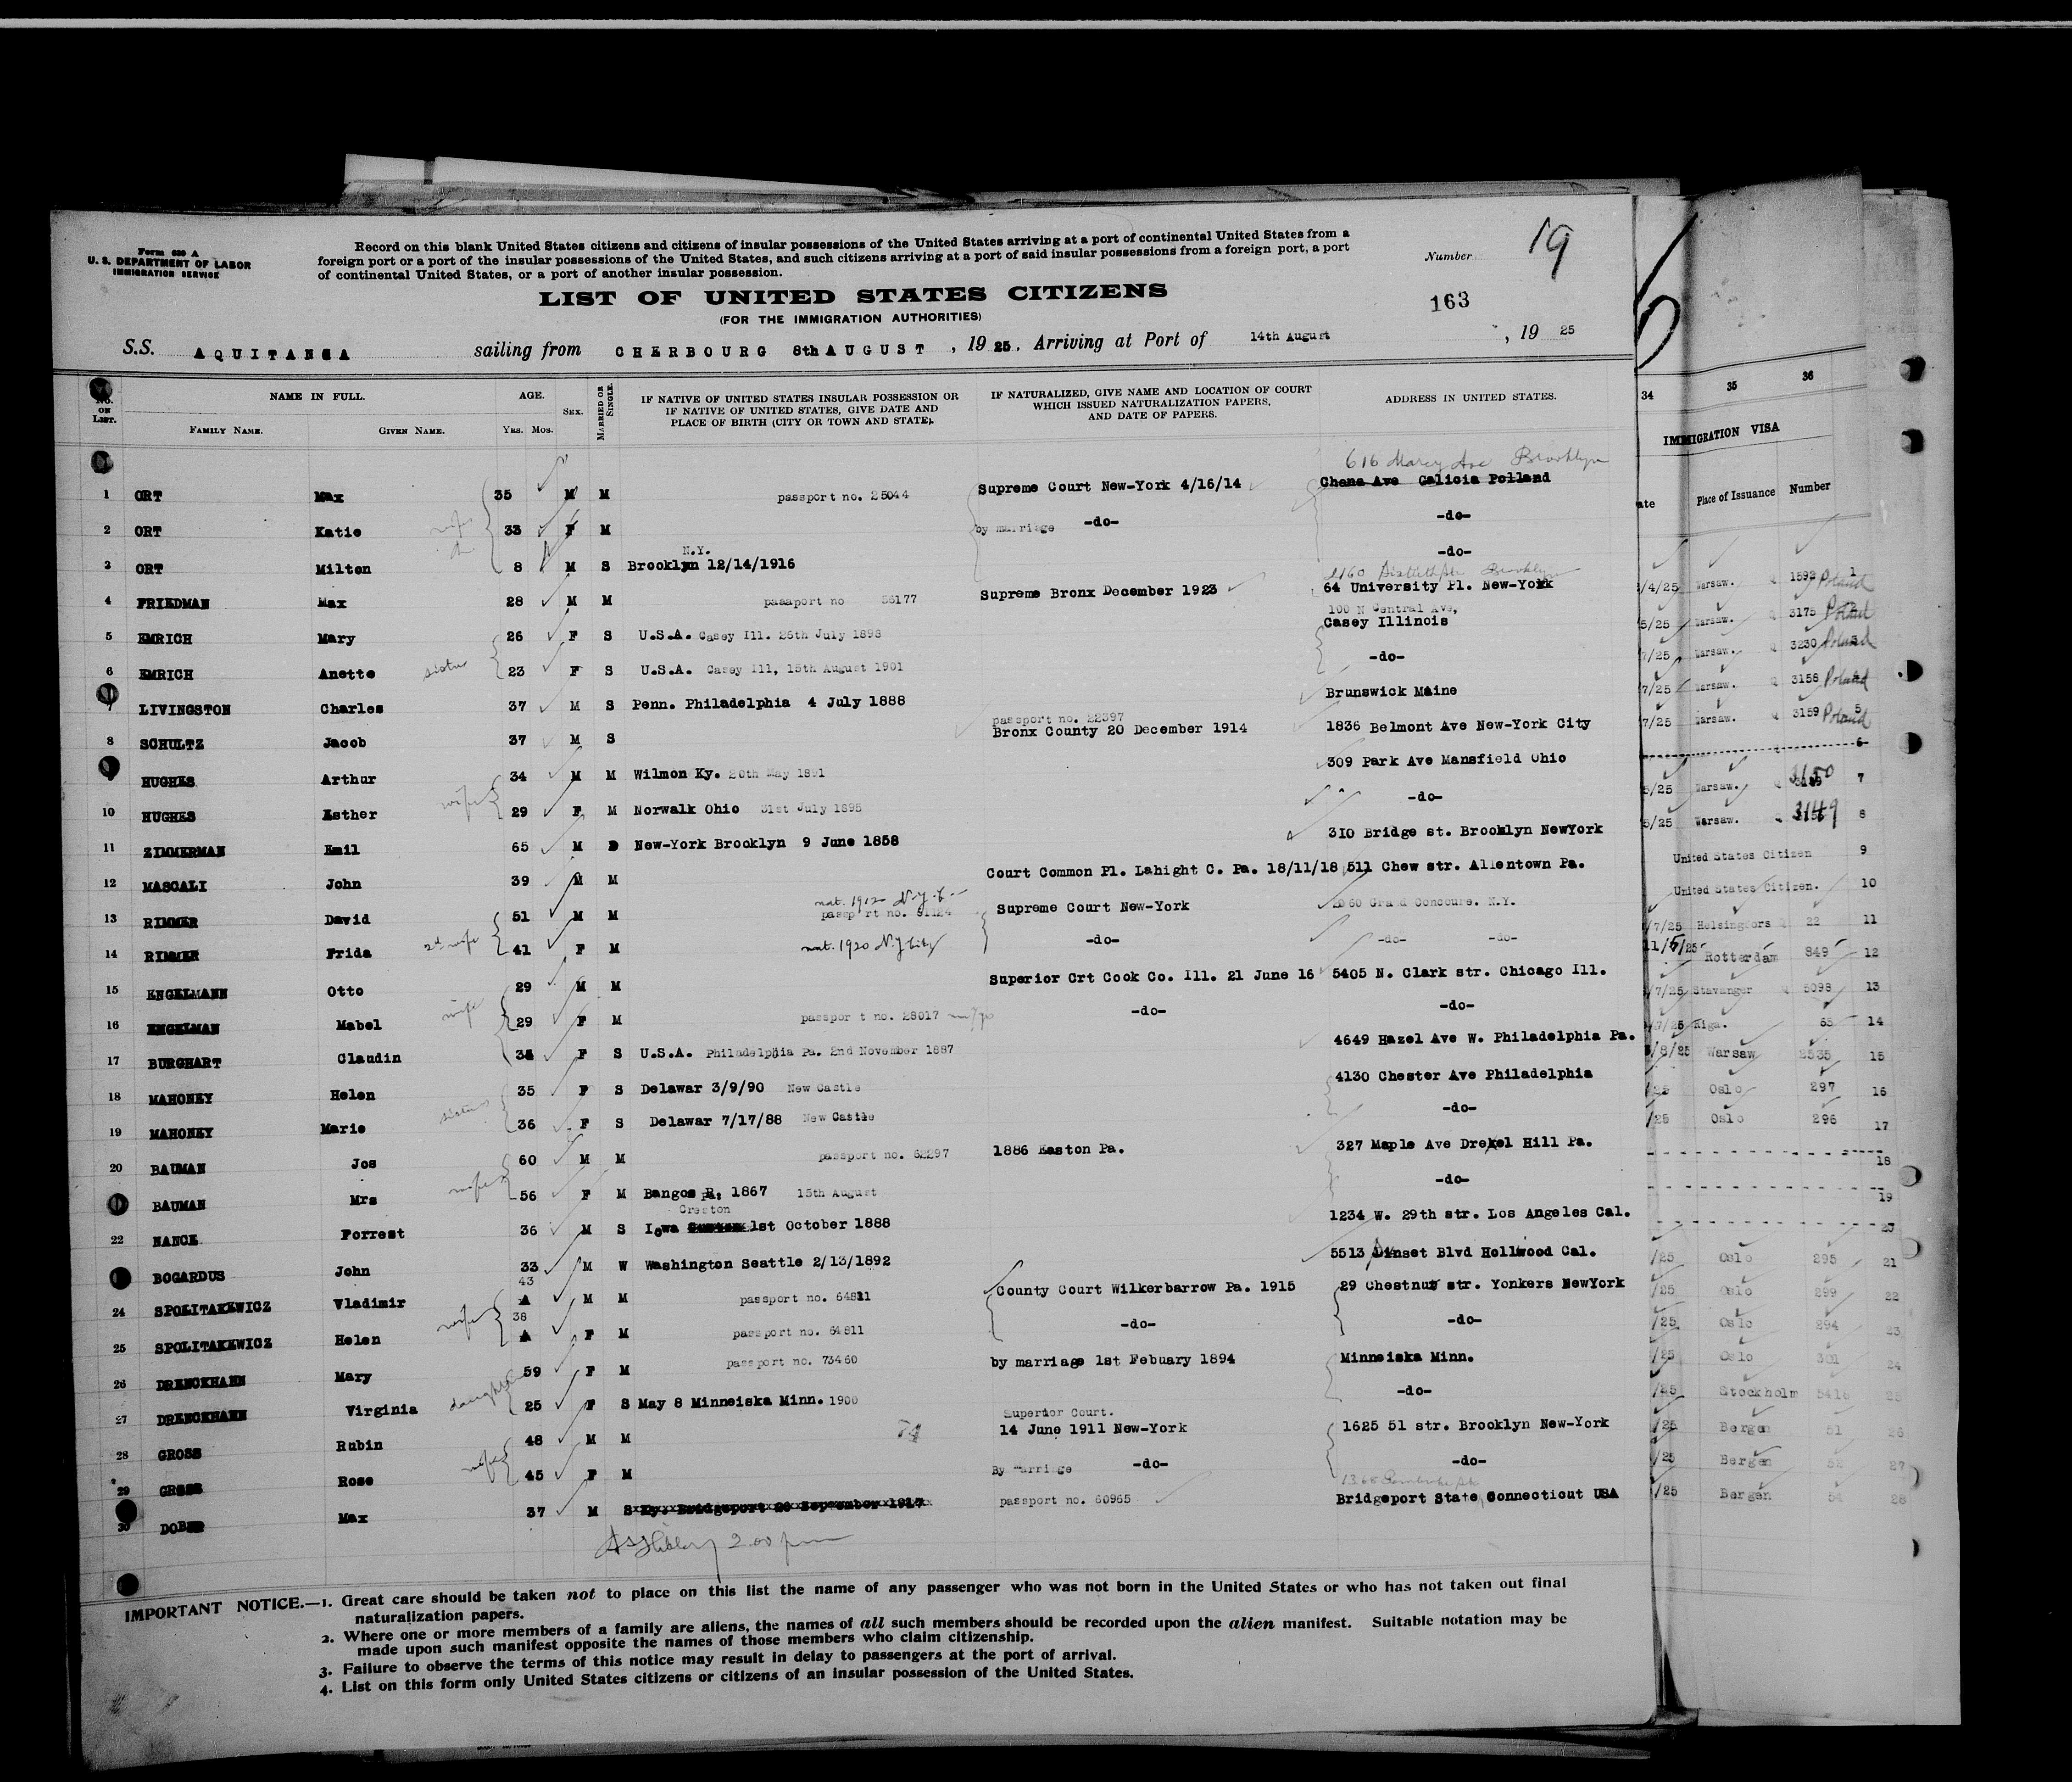 Form 630 A
U. S. DEPARTMENT OF LABOR
IMMIGRATION SERVICE
Record on this blank United States citizens and citizens of insular possessions of the United States arriving at a port of continental United States from a
foreign port or a port of the insular possessions of the United States, and such citizens arriving at a port of said insular possessions from a foreign port, a port
of continental United States, or a port of another insular possession.
Number
19
LIST OF UNITED STATES CITIZENS
163
(FOR THE IMMIGRATION AUTHORITIES)
S.S. AQUITANIA sailing from CHERBOURG 8th AUGUST , 19 25 , Arriving at Port of 14th August , 19 25
No. ON LIST. NAME IN FULL. AGE. SEX. MARRIED OR SINGLE. IF NATIVE OF UNITED STATES INSULAR POSSESSION OR IF NATIVE OF UNITED STATES, GIVE DATE AND PLACE OF BIRTH (CITY OR TOWN AND STATE). IF NATURALIZED, GIVE NAME AND LOCATION OF COURT WHICH ISSUED NATURALIZATION PAPERS, AND DATE OF PAPERS. ADDRESS IN UNITED STATES.
FAMILY NAME. GIVEN NAME. YRS. MOS.
616 Marcy Ave Brooklyn
1 ORT Max 35 M M passport no. 25044 Supreme Court New-York 4/16/14 Chana Ave Galicia Polland
2 ORT Katie wife 33 F M by marriage -do- -do-
3 ORT Milton 8 M S Brooklyn N.Y. 12/14/1916 -do-
4 FRIEDMAN Max 28 M M passport no 56177 Supreme Bronx December 1923 64 University Pl. New-York
100 N Central Ave,
5 EMRICH Mary 26 F S U.S.A. Casey Ill. 26th July 1898 Casey Illinois
6 EMRICH Anette sister 23 F S U.S.A. Casey Ill, 15th August 1901 -do-
7 LIVINGSTON Charles 37 M S Penn. Philadelphia 4 July 1888 Brunswick Maine
passport no. 22397
8 SCHULTZ Jacob 37 M S Bronx County 20 December 1914 1836 Belmont Ave New-York City
HUGHES Arthur 34 M M Wilmon Ky. 20th May 1891 309 Park Ave Mansfield Ohio
10 HUGHES Esther wife 29 F M Norwalk Ohio 31st July 1895 -do-
11 ZIMMERMAN Emil 65 M D New-York Brooklyn 9 June 1858 310 Bridge st. Brooklyn NewYork
12 MASCALI John 39 M M Court Common Pl. Lahight C. Pa. 18/11/18 511 Chew str. Allentown Pa.
nat. 1912 N.Y.C.
13 RIMMER David 51 M M passport no. Supreme Court New-York 2060 Grand Concourse. N.Y.
14 RIMMER Frida 2d wife 41 F M nat. 1920 N.Y City -do- -do- -do-
15 ENGELMANN Otto 29 M M Superior Crt Cook Co. Ill. 21 June 16 5405 N. Clark str. Chicago Ill.
16 ENGELMAN Mabel wife 29 F M passport no. 28017 -do- -do-
17 BURGHART Claudin F S U.S.A. Philadelphia Pa. 2nd November 1887 4649 Hazel Ave W. Philadelphia Pa.
18 MAHONEY Helen 35 F S Delawar 3/9/90 New Castle 4130 Chester Ave Philadelphia
19 MAHONEY Marie sister 36 F S Delawar 7/17/88 New Castle -do-
20 BAUMAN Jos 60 M M passport no. 62297 1886 Easton Pa. 327 Maple Ave Drexel Hill Pa.
BAUMAN Mrs wife 56 F M Bangor Pa. 1867 15th August -do-
22 NANCE Forrest 36 M S Iowa Creston 1st October 1888 1234 W. 29th str. Los Angeles Cal.
BOGARDUS John 33 M W Washington Seattle 2/13/1892 5513 Sunset Blvd Hollwood Cal.
24 SPOLITAKEWICZ Vladimir 43 M M passport no. 64811 County Court Wilkerbarrow Pa. 1915 29 Chestnut str. Yonkers NewYork
25 SPOLITAKEWICZ Helen wife 38 F M passport no. 64811 -do- -do-
26 DRENCKHAHN Mary 59 F M passport no. 73460 by marriage 1st Febuary 1894 Minneiska Minn.
27 DRENCKHAHN Virginia daughter 25 F S May 8 Minneiska Minn. 1900 -do-
Superior Court.
28 GROSS Rubin 48 M M 14 June 1911 New-York 1625 51 str. Brooklyn New-York
29 GROSS Rose wife 45 F M By marriage -do- -do-
30 DOBER Max 37 M S Ky. Bridgeport 26 September 1917 passport no. 60965 Bridgeport State Connecticut USA
2.00 pm
IMPORTANT NOTICE.—1. Great care should be taken not to place on this list the name of any passenger who was not born in the United States or who has not taken out final
naturalization papers.
2. Where one or more members of a family are aliens, the names of all such members should be recorded upon the alien manifest. Suitable notation may be
made upon such manifest opposite the names of those members who claim citizenship.
3. Failure to observe the terms of this notice may result in delay to passengers at the port of arrival.
4. List on this form only United States citizens or citizens of an insular possession of the United States.
34 35 36
IMMIGRATION VISA
ate Place of Issuance Number
/4/25 Warsaw. 1592 Poland 1
5/25 Warsaw. 3175 Poland
7/25 Warsaw. 3230 Poland
7/25 Warsaw. 3158 Poland
7/25 Warsaw. 3159 Poland 5
6
5/25 Warsaw. 3150 7
5/25 Warsaw. 3149 8
United States Citizen 9
United States Citizen. 10
/7/25 Helsingfors 22 11
11/5/25 Rotterdam 849 12
/7/25 Stavanger 5098 13
/7/25 Riga. 65 14
/8/25 Warsaw 2535 15
/25 Oslo 297 16
/25 Oslo 296 17
18
19
20
/25 Oslo 295 21
/25 Oslo 299 22
/25 Oslo 294 23
/25 Oslo 301 24
/25 Stockholm 5416 25
/25 Bergen 51 26
/25 Bergen 52 27
/25 Bergen 54 28